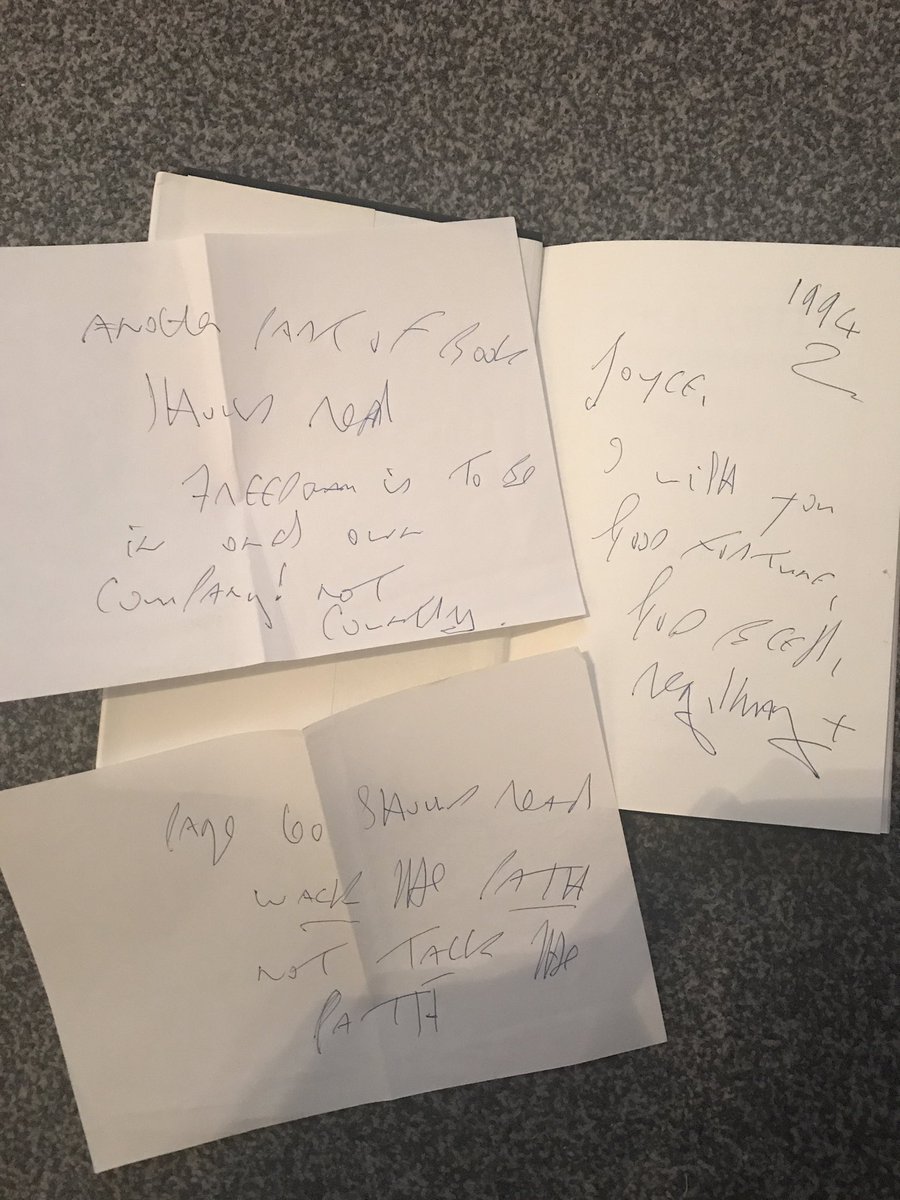 ANOTHER PART OF BOOK
SHOULD READ
FREEDOM is TO BE
in ones own
COMPANY! NOT
COUNTRY.
1994
JOYCE,
I WISH you
GOOD FORTUNE,
GOD BLESS,
Reg
PAGE 60 SHOULD READ
WALK THE PATH
NOT TALK THE
PATH